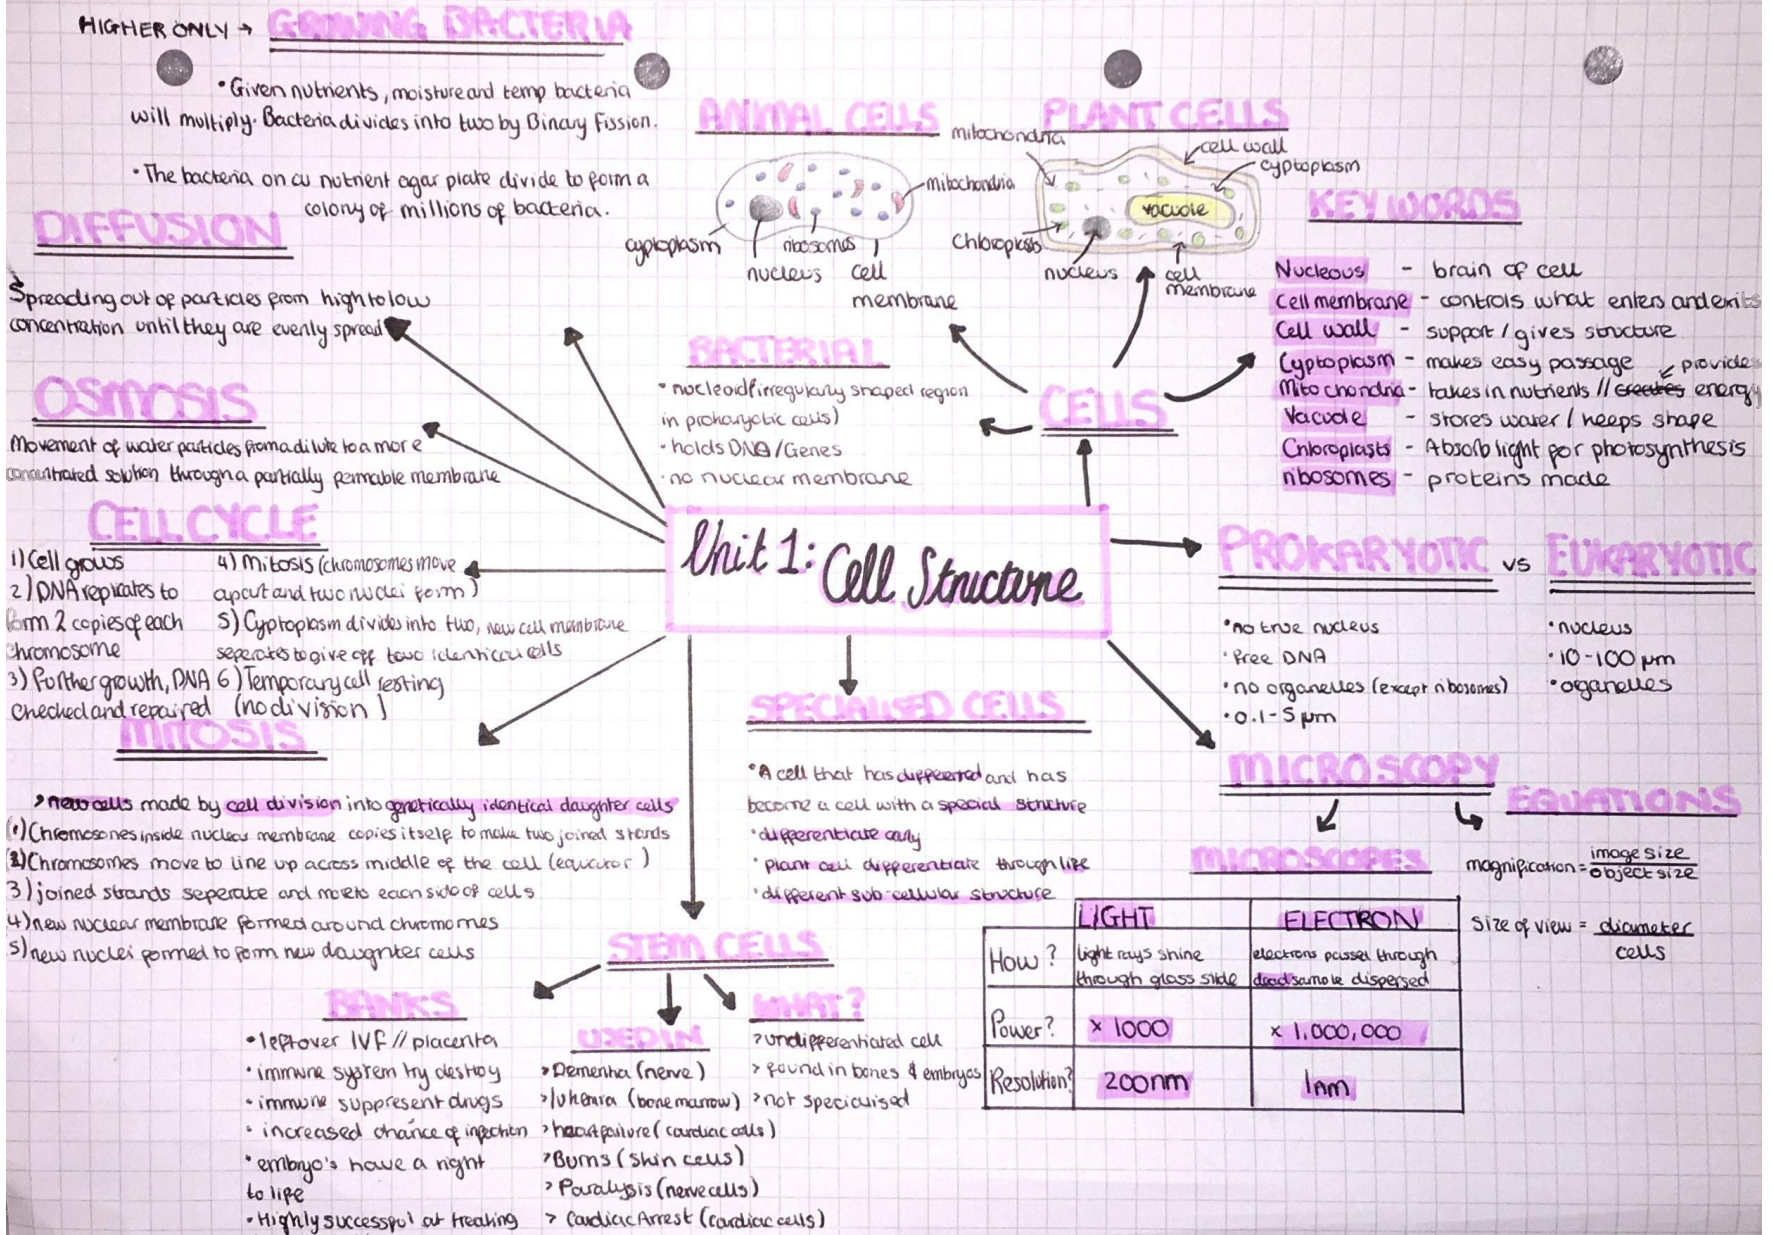 HIGHER ONLY → GROWING BACTERIA
• Given nutrients, moisture and temp bacteria
will multiply. Bacteria divides into two by Binary Fission.
• The bacteria on a nutrient agar plate divide to form a
colony of millions of bacteria.
DIFFUSION
Spreading out of particles from high to low
concentration until they are evenly spread
OSMOSIS
Movement of water particles from a dilute to a more
concentrated solution through a partially permable membrane
CELL CYCLE
1) Cell grows
2) DNA replicates to
form 2 copies of each
chromosome
3) Further growth, DNA
checked and repaired
4) Mitosis (chromosomes move
apart and two nuclei form)
5) Cyptoplasm divides into two, new cell membrane
seperates to give off two identical cells
6) Temporary cell resting
(no division)
MITOSIS
> new cells made by cell division into genetically identical daughter cells
1) Chromosones inside nuclear membrane copies itself to make two joined strands
2) Chromosomes move to line up across middle of the cell (equator)
3) joined strands seperate and move to each side of cells
4) new nuclear membrane formed around chromomes
5) new nuclei formed to form new daughter cells
ANIMAL CELLS
mitochondria
cyptoplasm
ribosomes
nucleus
cell
membrane
PLANT CELLS
mitochondria
cell wall
cyptoplasm
vacuole
Chloroplasts
nucleus
cell
membrane
KEY WORDS
Nucleous - brain of cell
Cell membrane - controls what enters and exits
Cell wall - support / gives structure
Cyptoplasm - makes easy passage
provides
Mitochondria - takes in nutrients // creates energy
Vacuole - stores water / keeps shape
Chloroplasts - Absorb light for photosynthesis
ribosomes - proteins made
BACTERIAL
• nucleoid (irregularly shaped region
in prokaryotic cells)
• holds DNA / Genes
• no nuclear membrane
CELLS
Unit 1: Cell Structure
PROKARYOTIC vs EUKARYOTIC
• no true nucleus
• free DNA
• no organelles (except ribosomes)
• 0.1-5 µm
• nucleus
• 10-100 µm
• organelles
SPECIALISED CELLS
• A cell that has differented and has
become a cell with a special structure
• differentiate early
• plant cell differentiate through life
• different sub-cellular structure
MICROSCOPY
EQUATIONS
magnification = image size
object size
size of view = diameter
cells
MICROSCOPES
LIGHT ELECTRON
How? light rays shine
through glass slide
electrons passed through
dead sample dispersed
Power? × 1000 × 1,000,000
Resolution? 200nm 1nm
STEM CELLS
BANKS
• leftover IVF // placenta
• immune system try destroy
• immune suppresent drugs
• increased chance of infection
• embryo's have a right
to life
• Highly successful at treating
USED IN
> Dementia (nerve)
> lukemia (bone marrow)
> heart failure (cardiac cells)
> Burns (skin cells)
> Paralysis (nerve cells)
> Cardiac Arrest (cardiac cells)
WHAT?
> undifferentiated cell
> found in bones & embryos
> not specialised